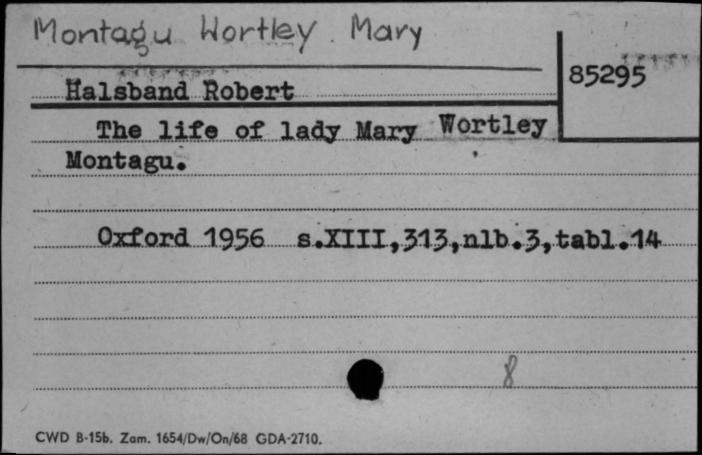 Montagu Wortley Mary
85295
Halsband Robert
The life of lady Mary Wortley
Montagu.
Oxford 1956 s.XIII,313,nlb.3,tabl.14
8
CWD B-15b. Zam. 1654/Dw/On/68 GDA-2710.